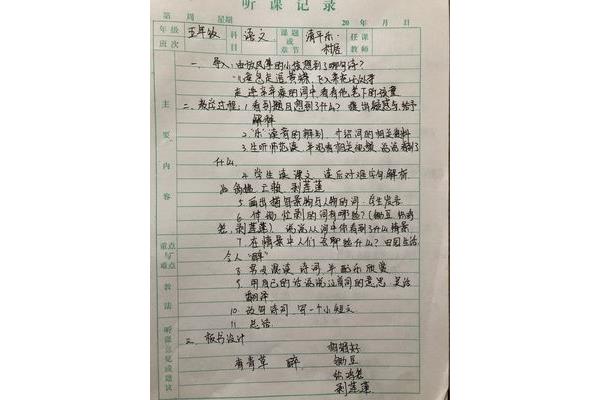 听课记录
第 周 星期 20 年 月 日
年级 班次 五年级 科目 语文 课题或章节 清平乐·村居 任课教师
一、导入:由放风筝的小孩想到了哪句诗?
儿童急走追黄蝶,飞入菜花无处寻
走进辛弃疾的词中看看他笔下的孩童
主要内容
二、教学过程:1.看到题目想到了什么? 提出疑惑与给予
解释
2."乐"读音的辨别,介绍词的相关资料
3.生听师范读,并观看相关视频,说说看到了
什么
4.学生读课文,读后对难字句解析
翁媪 亡赖 剥莲蓬
5.画出描写景物与人物的词,学生发言
6. (锄豆 织鸡
笼 剥莲蓬) 说说从词中你看到了什么情景
重点与难点
7.在情景中人们会聊些什么?田园生活
令人"醉"
8.男女混读诗词,并配乐欣赏
教法
9.用自己的话说说这首词的意思
翻译
10.改写诗词,写一个小短文
11.总结
听课意见或建议
三、板书设计
锄豆
有青草 醉 织鸡笼
剥莲蓬